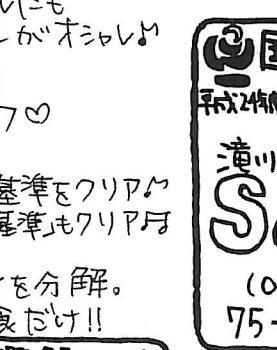 にも
がオシャレ♪
フ♡
基準をクリア♪
基準」もクリア♬
を分解。
だけ!!
平成24年
滝川
S
(0
75-